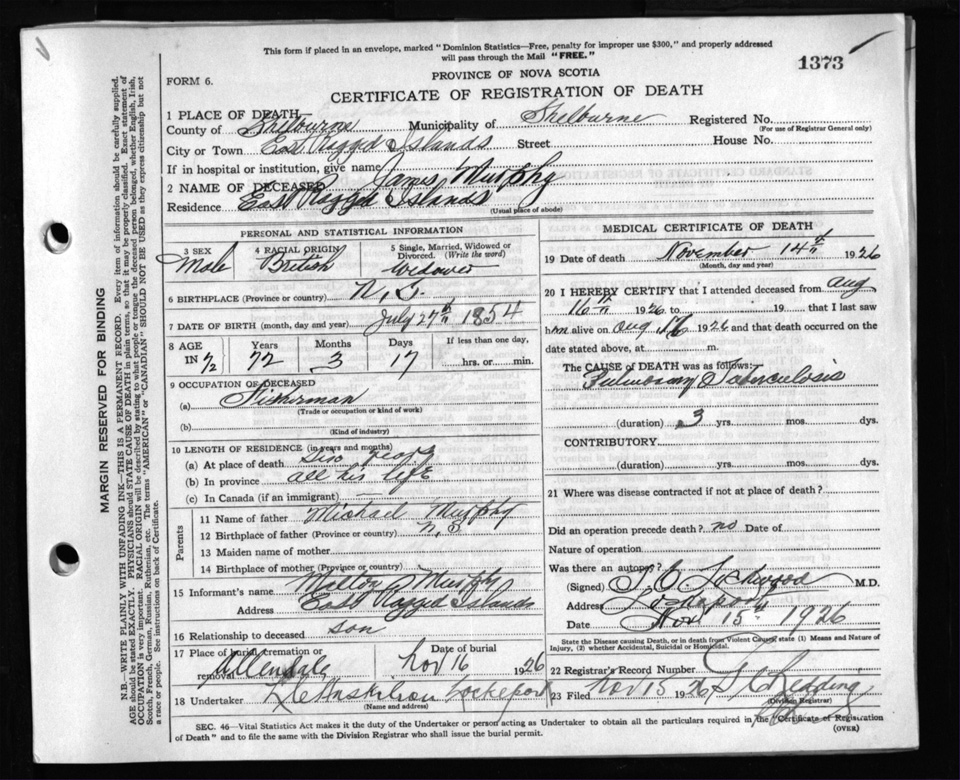 This form if placed in an envelope, marked "Dominion Statistics—Free, penalty for improper use $300," and properly addressed
will pass through the Mail "FREE."
1373
PROVINCE OF NOVA SCOTIA
FORM 6.
CERTIFICATE OF REGISTRATION OF DEATH
1 PLACE OF DEATH
County of Shelburne Municipality of Shelburne Registered No.
(For use of Registrar General only)
City or Town East Ragged Islands Street House No.
If in hospital or institution, give name
2 NAME OF DECEASED James Murphy
Residence East Ragged Islands
(Usual place of abode)
PERSONAL AND STATISTICAL INFORMATION
3 SEX 4 RACIAL ORIGIN 5 Single, Married, Widowed or
Divorced. (Write the word)
Male British Widower
6 BIRTHPLACE (Province or country) N.S.
7 DATE OF BIRTH (month, day and year) July 27th 1854
8 AGE Years Months Days If less than one day,
IN 72 72 3 17 hrs. or min.
9 OCCUPATION OF DECEASED
(a) Fisherman
(Trade or occupation or kind of work)
(b)
(Kind of industry)
10 LENGTH OF RESIDENCE (in years and months)
(a) At place of death years
(b) In province all his life
(c) In Canada (if an immigrant)
Parents
11 Name of father Michael Murphy
12 Birthplace of father (Province or country) N.S
13 Maiden name of mother
14 Birthplace of mother (Province or country)
15 Informant's name Murphy
Address East Ragged Islands
16 Relationship to deceased son
17 Place of burial, cremation or Date of burial
removal Allendale Nov 16 1926
18 Undertaker Lockeport
(Name and address)
MEDICAL CERTIFICATE OF DEATH
19 Date of death November 14th 1926
(Month, day and year)
20 I HEREBY CERTIFY that I attended deceased from Aug.
16th 1926 to 19 that I last saw
him alive on Aug 16 1926 and that death occurred on the
date stated above, at m.
The CAUSE OF DEATH was as follows:
Pulmonary Tuberculosis
(duration) 3 yrs. mos. dys.
CONTRIBUTORY
(duration) yrs. mos. dys.
21 Where was disease contracted if not at place of death?
Did an operation precede death? no Date of
Nature of operation
Was there an autopsy?
(Signed) Lockwood M.D.
Address Lockeport
Date Nov 15th 1926
State the Disease causing Death, or in death from Violent Causes, state (1) Means and Nature
of Injury, (2) whether Accidental, Suicidal or Homicidal.
22 Registrar's Record Number
23 Filed Nov 15 1926 Redding
(Division Registrar)
SEC. 46—Vital Statistics Act makes it the duty of the Undertaker or person acting as Undertaker to obtain all the particulars required in the Certificate of Registration
of Death" and to file the same with the Division Registrar who shall issue the burial permit.
(OVER)
MARGIN RESERVED FOR BINDING
N.B.—WRITE PLAINLY WITH UNFADING INK—THIS IS A PERMANENT RECORD. Every item of information should be carefully supplied.
AGE should be stated EXACTLY. PHYSICIANS should STATE CAUSE OF DEATH in plain terms, so that it may be properly classified. Exact statement of
OCCUPATION is very important. RACIAL ORIGIN will be described by stating to what people or tongue the deceased person belonged, whether English, Irish,
Scotch, French, German, Russian, Ruthenian, etc. The terms "AMERICAN" or "CANADIAN" SHOULD NOT BE USED as they express citizenship but not
a race or people. See instructions on back of Certificate.